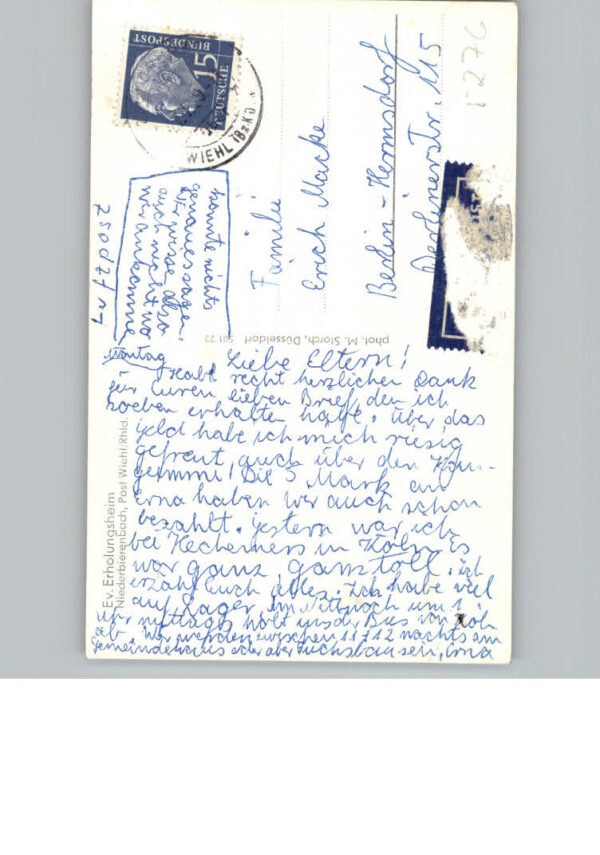 DEUTSCHE
BUNDESPOST
15
WIEHL (BZ KÖ
1276
Familie
Erich Macke
Berlin-Hermsdorf
Berlinerstr. 115
phot. M. Storch, Düsseldorf 501 22
Ev. Erholungsheim
Niederbierenbach, Post Wiehl/Rhld.
Montag
Liebe Eltern!
Habt recht herzlichen Dank
für Euren lieben Brief den ich
soeben erhalten habe. Über das
Geld habe ich mich riesig
gefreut, auch über den
Die 5 Mark an
Erna haben wir auch schon
bezahlt. Gestern war ich
bei in Köln. Es
war ganz, ganz toll. Ich
erzähl Euch alles. Ich habe viel
auf Lager. Am Mittwoch um 1
Uhr mittags holt uns der Bus von
ab. Wir werden zwischen 11 + 12 nachts am
Gemeindehaus oder aber sein, Erna
konnte nichts
genaues sagen.
Wir wissen also
auch nicht wo
wir ankommen